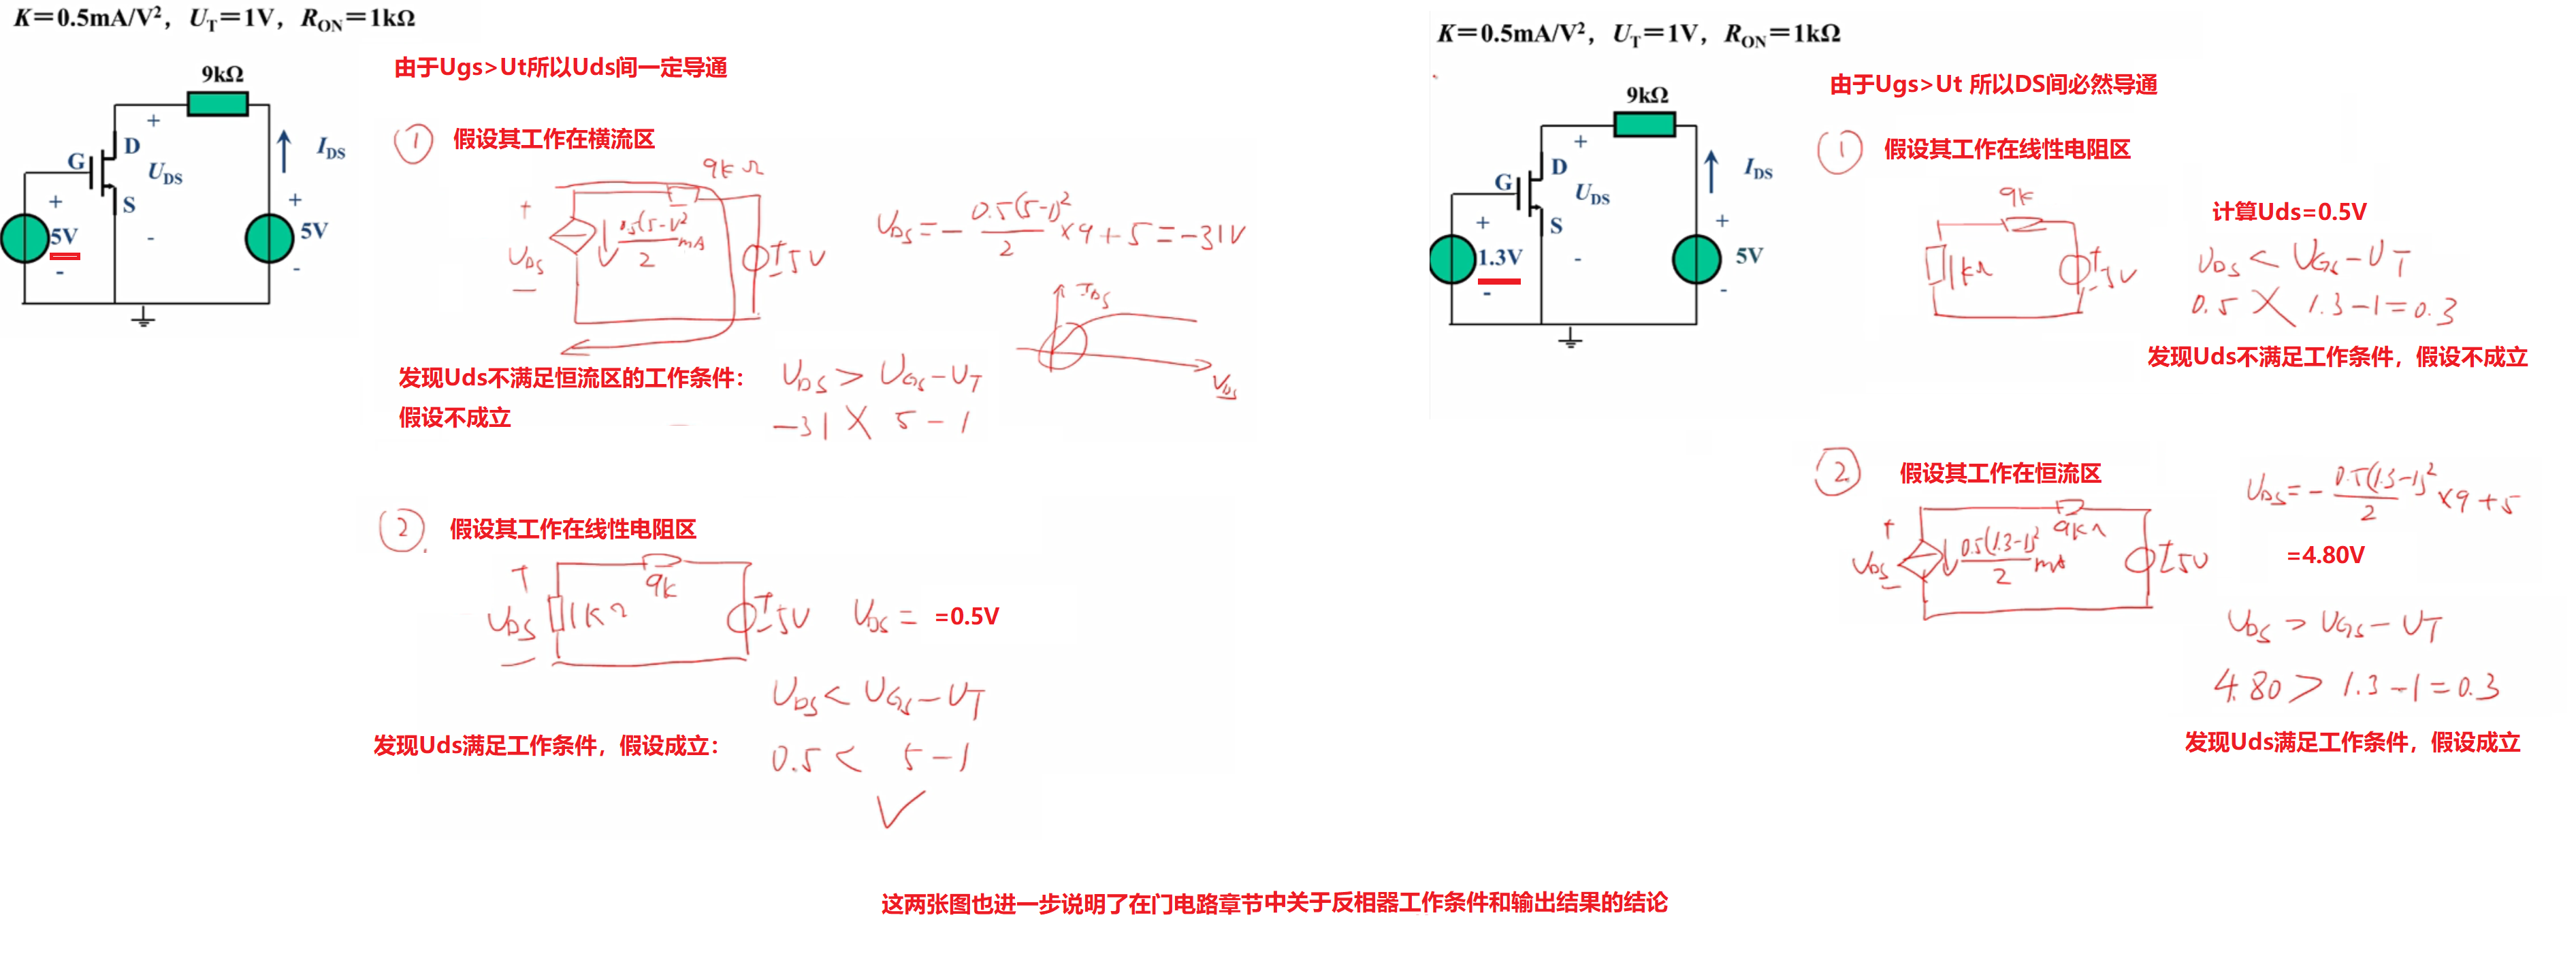 K=0.5mA/V², U_T=1V, R_ON=1kΩ
9kΩ
+
D
G
U_DS
I_DS
S
+
5V
-
-
+
5V
-
由于Ugs>Ut所以Uds间一定导通
① 假设其工作在横流区
9kΩ
+
U_DS
-
0.5(5-1)²/2 mA
+
-
5V
U_DS = - 0.5(5-1)²/2 ×9+5=-31V
I_DS
U_DS
发现Uds不满足恒流区的工作条件：
假设不成立
U_DS > U_GS-U_T
-31 X 5-1
② 假设其工作在线性电阻区
+
U_DS
-
1kΩ
9k
+
-
5V
U_DS = =0.5V
U_DS < U_GS-U_T
发现Uds满足工作条件，假设成立：
0.5 < 5-1
✓
K=0.5mA/V², U_T=1V, R_ON=1kΩ
9kΩ
+
D
G
U_DS
I_DS
S
+
1.3V
-
-
+
5V
-
由于Ugs>Ut 所以DS间必然导通
① 假设其工作在线性电阻区
9k
1kΩ
+
-
5V
计算Uds=0.5V
U_DS < U_GS-U_T
0.5 X 1.3-1=0.3
发现Uds不满足工作条件，假设不成立
② 假设其工作在恒流区
+
U_DS
-
0.5(1.3-1)²/2 mA
9kΩ
+
-
5V
U_DS = - 0.5(1.3-1)²/2 ×9+5
=4.80V
U_DS > U_GS-U_T
4.80 > 1.3-1=0.3
发现Uds满足工作条件，假设成立
这两张图也进一步说明了在门电路章节中关于反相器工作条件和输出结果的结论